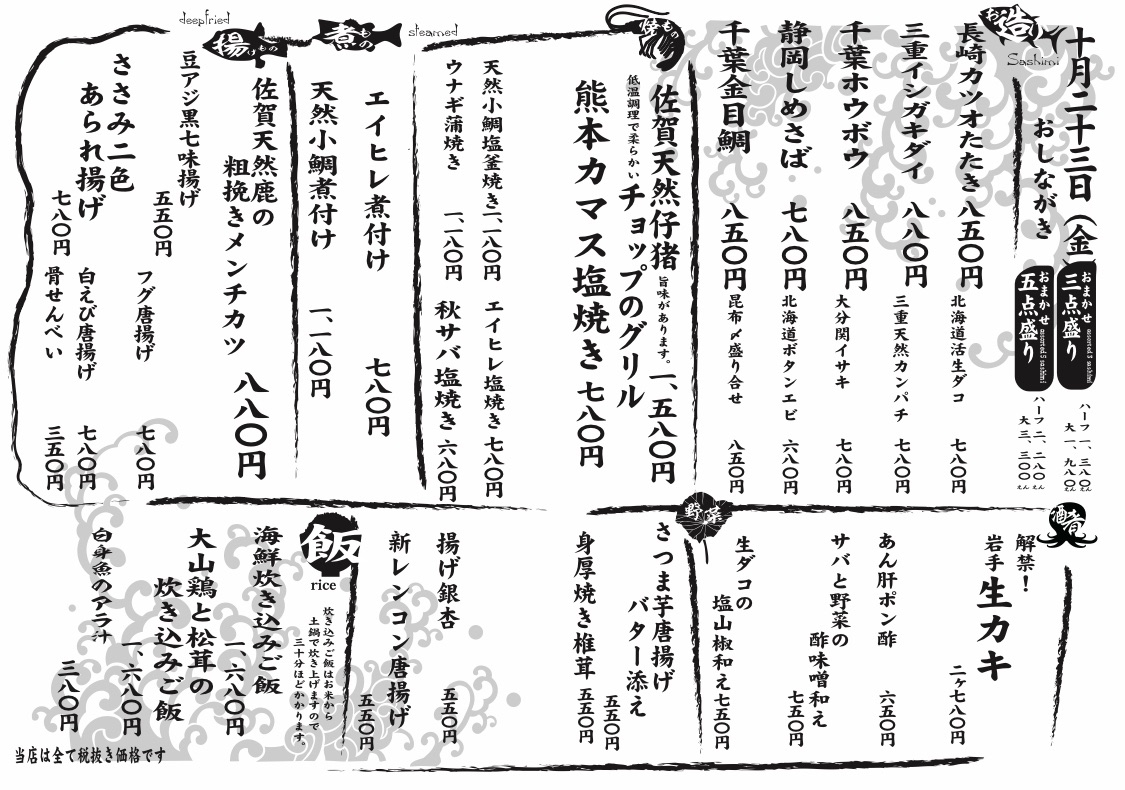 十月二十三日（金）
おしながき
おまかせ
三点盛り
assorted 3 sashimi
ハーフ 一、三八〇えん
大 一、九八〇えん
おまかせ
五点盛り
assorted 5 sashimi
ハーフ 二、二八〇えん
大 三、三〇〇えん
お造
Sashimi
長崎カツオたたき 八五〇円
三重イシガキダイ 八八〇円
千葉ホウボウ 八五〇円
静岡しめさば 七八〇円
千葉金目鯛 八五〇円
北海道活生ダコ 七八〇円
三重天然カンパチ 七八〇円
大分関イサキ 七八〇円
北海道ボタンエビ 六八〇円
昆布〆盛り合せ 八五〇円
焼もの
佐賀天然仔猪
旨味があります。
一、五八〇円
低温調理で柔らかい
チョップのグリル
熊本カマス塩焼き 七八〇円
天然小鯛塩釜焼き 一、一八〇円
ウナギ蒲焼き 一、一八〇円
エイヒレ塩焼き 七八〇円
秋サバ塩焼き 六八〇円
steamed
煮もの
エイヒレ煮付け 七八〇円
天然小鯛煮付け 一、一八〇円
deepfried
揚げもの
佐賀天然鹿の
粗挽きメンチカツ 八八〇円
豆アジ黒七味揚げ 五五〇円
ささみ二色
あられ揚げ 七八〇円
フグ唐揚げ 七八〇円
白えび唐揚げ 七八〇円
骨せんべい 三五〇円
酒肴
解禁！
岩手生カキ 二ヶ七八〇円
あん肝ポン酢 六五〇円
サバと野菜の
酢味噌和え 七五〇円
生ダコの
塩山椒和え 七五〇円
野菜
さつま芋唐揚げ
バター添え 五五〇円
身厚焼き椎茸 五五〇円
揚げ銀杏 五五〇円
新レンコン唐揚げ 五五〇円
飯
rice
炊き込みご飯はお米から
土鍋で炊き上げますので
三十分ほどかかります。
海鮮炊き込みご飯 一、六八〇円
大山鶏と松茸の
炊き込みご飯 一、六八〇円
白身魚のアラ汁 三八〇円
当店は全て税抜き価格です